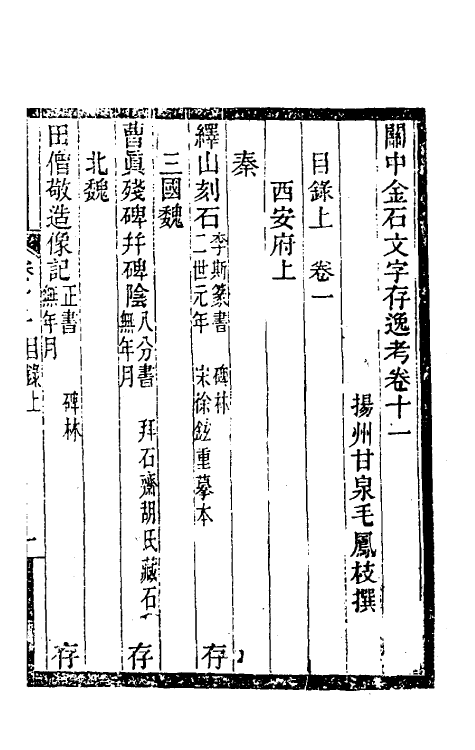 關中金石文字存逸考卷十一
揚州甘泉毛鳳枝撰
目錄上　卷一
西安府上
秦
繹山刻石　李斯篆書　碑林
二世元年　宋徐鉉重摹本　存
三國魏
曹眞殘碑幷碑陰　八分書　拜石齋胡氏藏石
無年月　存
北魏
田僧敬造像記　正書　碑林
無年月　存
目錄上